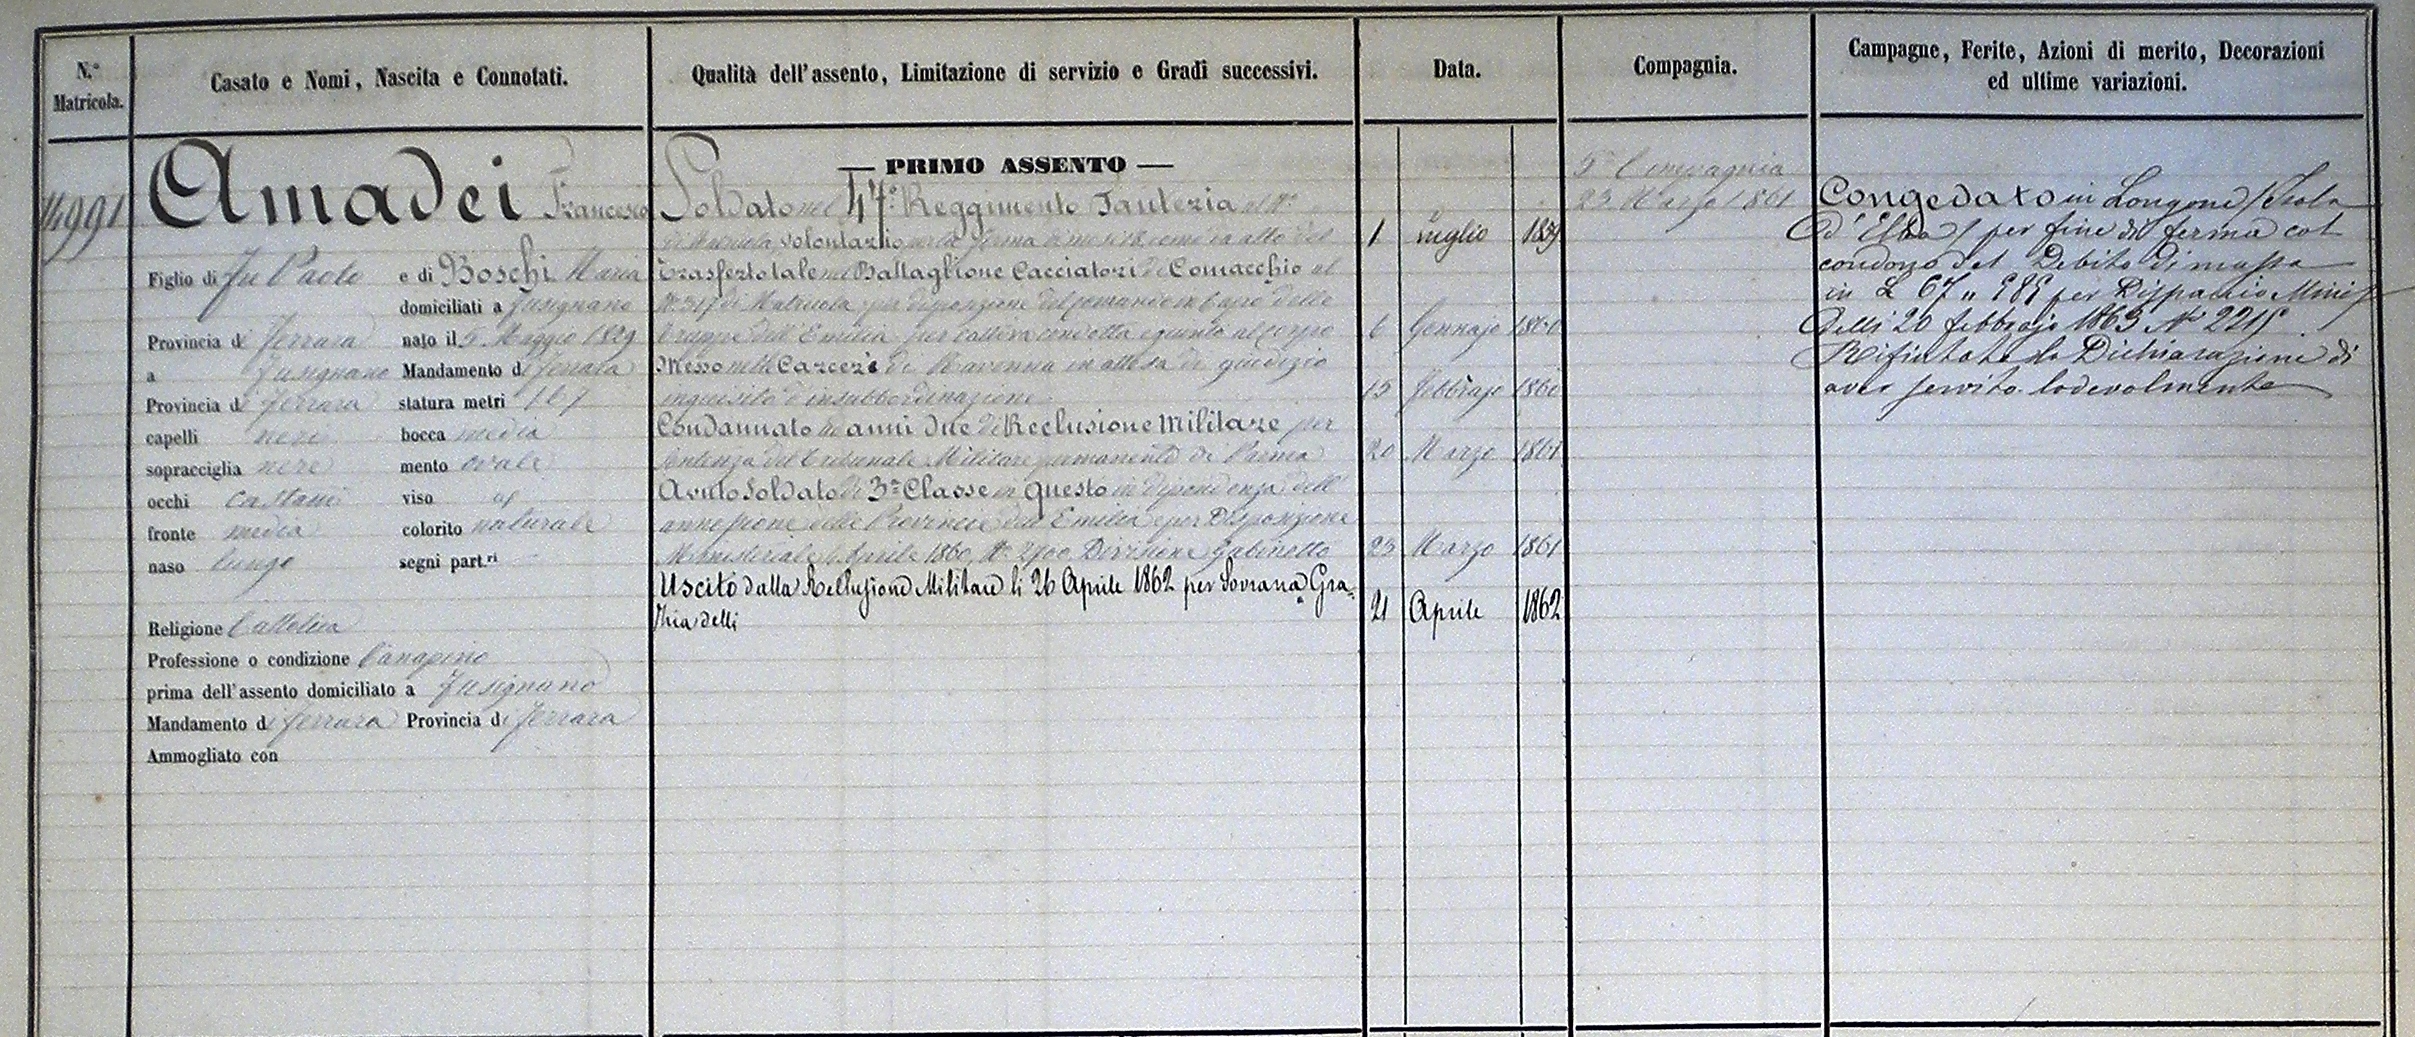 N.°
Matricola.
Casato e Nomi, Nascita e Connotati.
Qualità dell'assento, Limitazione di servizio e Gradi successivi.
Data.
Compagnia.
Campagne, Ferite, Azioni di merito, Decorazioni
ed ultime variazioni.
14991
Amadei Francesco
Figlio di fu Paolo e di Boschi Maria
domiciliati a Fusignano
Provincia di Ferrara nato il 5 Maggio 1829
a Fusignano Mandamento di Ferrara
Provincia di Ferrara statura metri 1.67
capelli neri bocca media
sopracciglia nere mento ovale
occhi castani viso
fronte media colorito naturale
naso lungo segni part.ri
Religione Cattolica
Professione o condizione Canapino
prima dell'assento domiciliato a Fusignano
Mandamento di Ferrara Provincia di Ferrara
Ammogliato con
— PRIMO ASSENTO —
Soldato nel 47° Reggimento Fanteria al N°
di Matricola volontario colla ferma di mesi 18 come da atto del
1 Luglio 1859
Trasferto tale nel Battaglione Cacciatori di Comacchio al
N. 317 di Matricola per disposizione del comando in Capo delle
truppe dell'Emilia per cattiva condotta e giunto al corpo
6 Gennajo 1860
Messo nelle Carceri di Ravenna in attesa di giudizio
inquisito d'insubbordinazione
15 Febbrajo 1860
Condannato in anni due di Reclusione Militare per
sentenza del tribunale Militare permanente di Parma
20 Marzo 1861
Avuto Soldato di 3ª Classe in questo in dipendenza dell'
annessione delle Provincie dell'Emilia e per Disposizione
Ministeriale Aprile 1860, N. 2700 Divisione Gabinetto
23 Marzo 1861
Uscito dalla Reclusione Militare li 26 Aprile 1862 per Sovrana Gra=
zia delli
21 Aprile 1862
5ª Compagnia
23 Marzo 1861
Congedato in Longone (Isola
d'Elba) per fine di ferma col
condono del Debito di massa
in £ 67 " per Dispaccio Minis
delli 20 febbrajo 1863 N°
Rifiutata la Dichiarazione di
aver servito lodevolmente